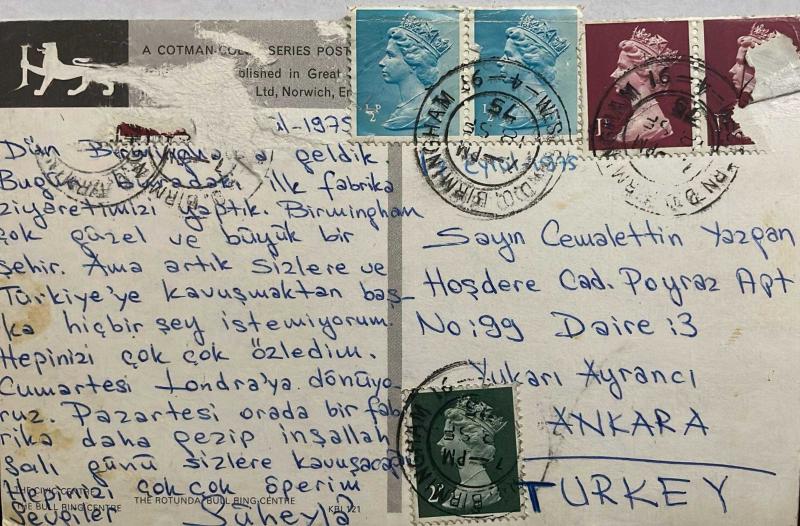 A COTMAN-COLOR SERIES POST
blished in Great
Ltd, Norwich, En
1975
Dün Birmingham'a geldik
Bugün Buradaki ilk fabrika
ziyaretimizi yaptık. Birmingham
çok güzel ve büyük bir
şehir. Ama artık sizlere ve
Türkiye'ye kavuşmaktan baş-
ka hiçbir şey istemiyorum.
Hepinizi çok çok özledim.
Cumartesi Londra'ya dönüyo-
ruz. Pazartesi orada bir fab
rika daha gezip inşallah
Salı günü sizlere kavuşacağım
Hepinizi çok çok öperim
Sevgiler Süheyla
THE CIVIC CENTRE
THE BULL RING CENTRE
THE ROTUNDA, BULL RING CENTRE
KBI 121
½P
½
1P
2P
BIRMINGHAM
BIRMINGHAM
BIRMINGHAM
Sayın Cemalettin Yazgan
Hoşdere Cad. Poyraz Apt
No:99 Daire:3
Yukarı Ayrancı
ANKARA
TURKEY